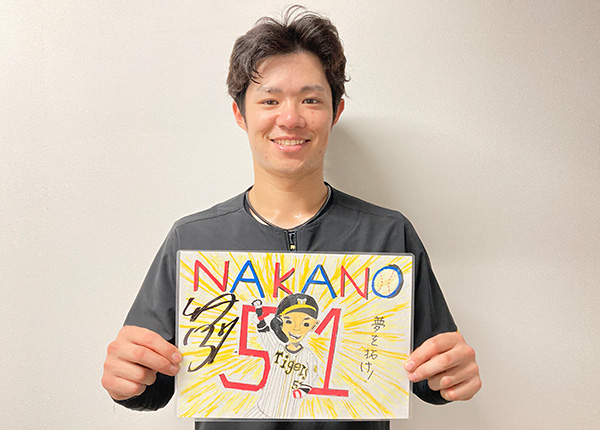 NAKANO
51
夢を
拓け!
Tigers
51